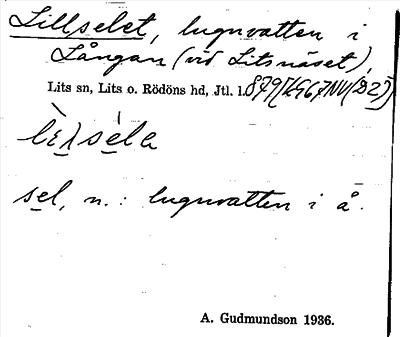 Lillselet, lugnvatten i
Långan (vid Litsnäset),
Lits sn, Lits o. Rödöns hd, Jtl. l.
sel, n.: lugnvatten i å.
A. Gudmundson 1936.